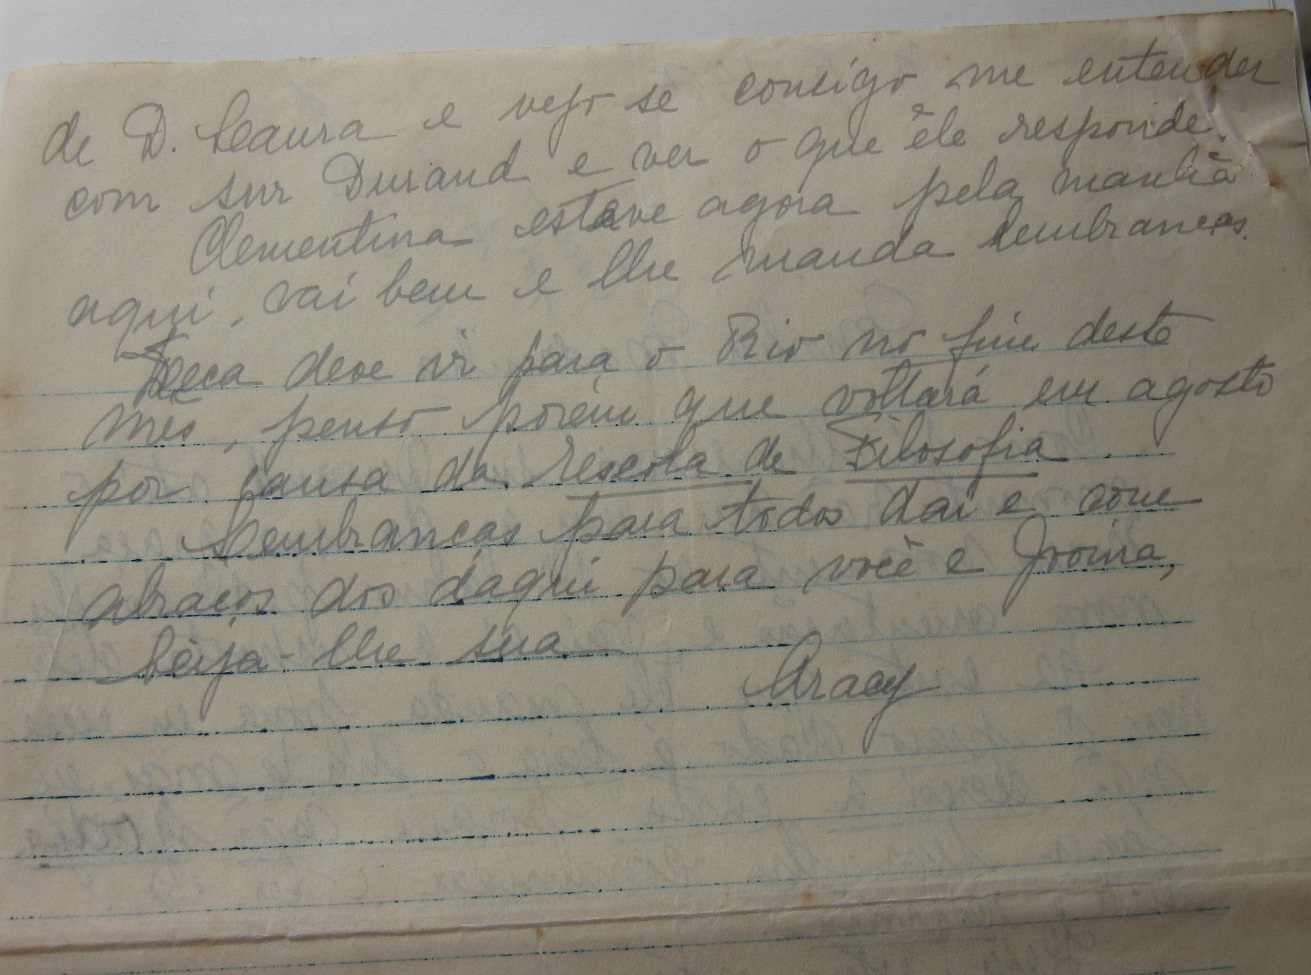 de D. Laura e vejo se consigo me entender
com sur Durand e ver o que êle responde.
Clementina esteve agora pela manhã
aqui, vai bem e lhe manda lembranças.
Zeca deve vir para o Rio no fim deste
mês, penso porém que voltará em agosto
por causa da escola de Filosofia.
Lembranças para todos daí e com
abraços dos daqui para você e
beija-lhe sua
Aracy